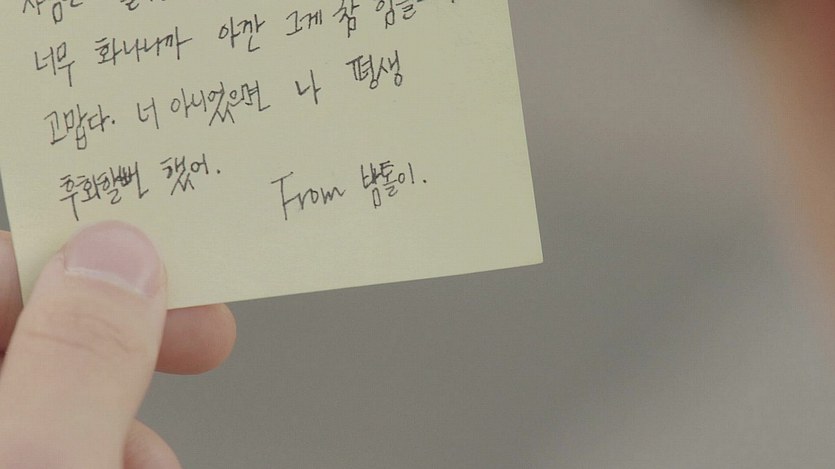 너무 화나니까 아깐 그게 참
고맙다. 너 아니었으면 나 평생
후회할뻔 했어.
From 밤톨이.